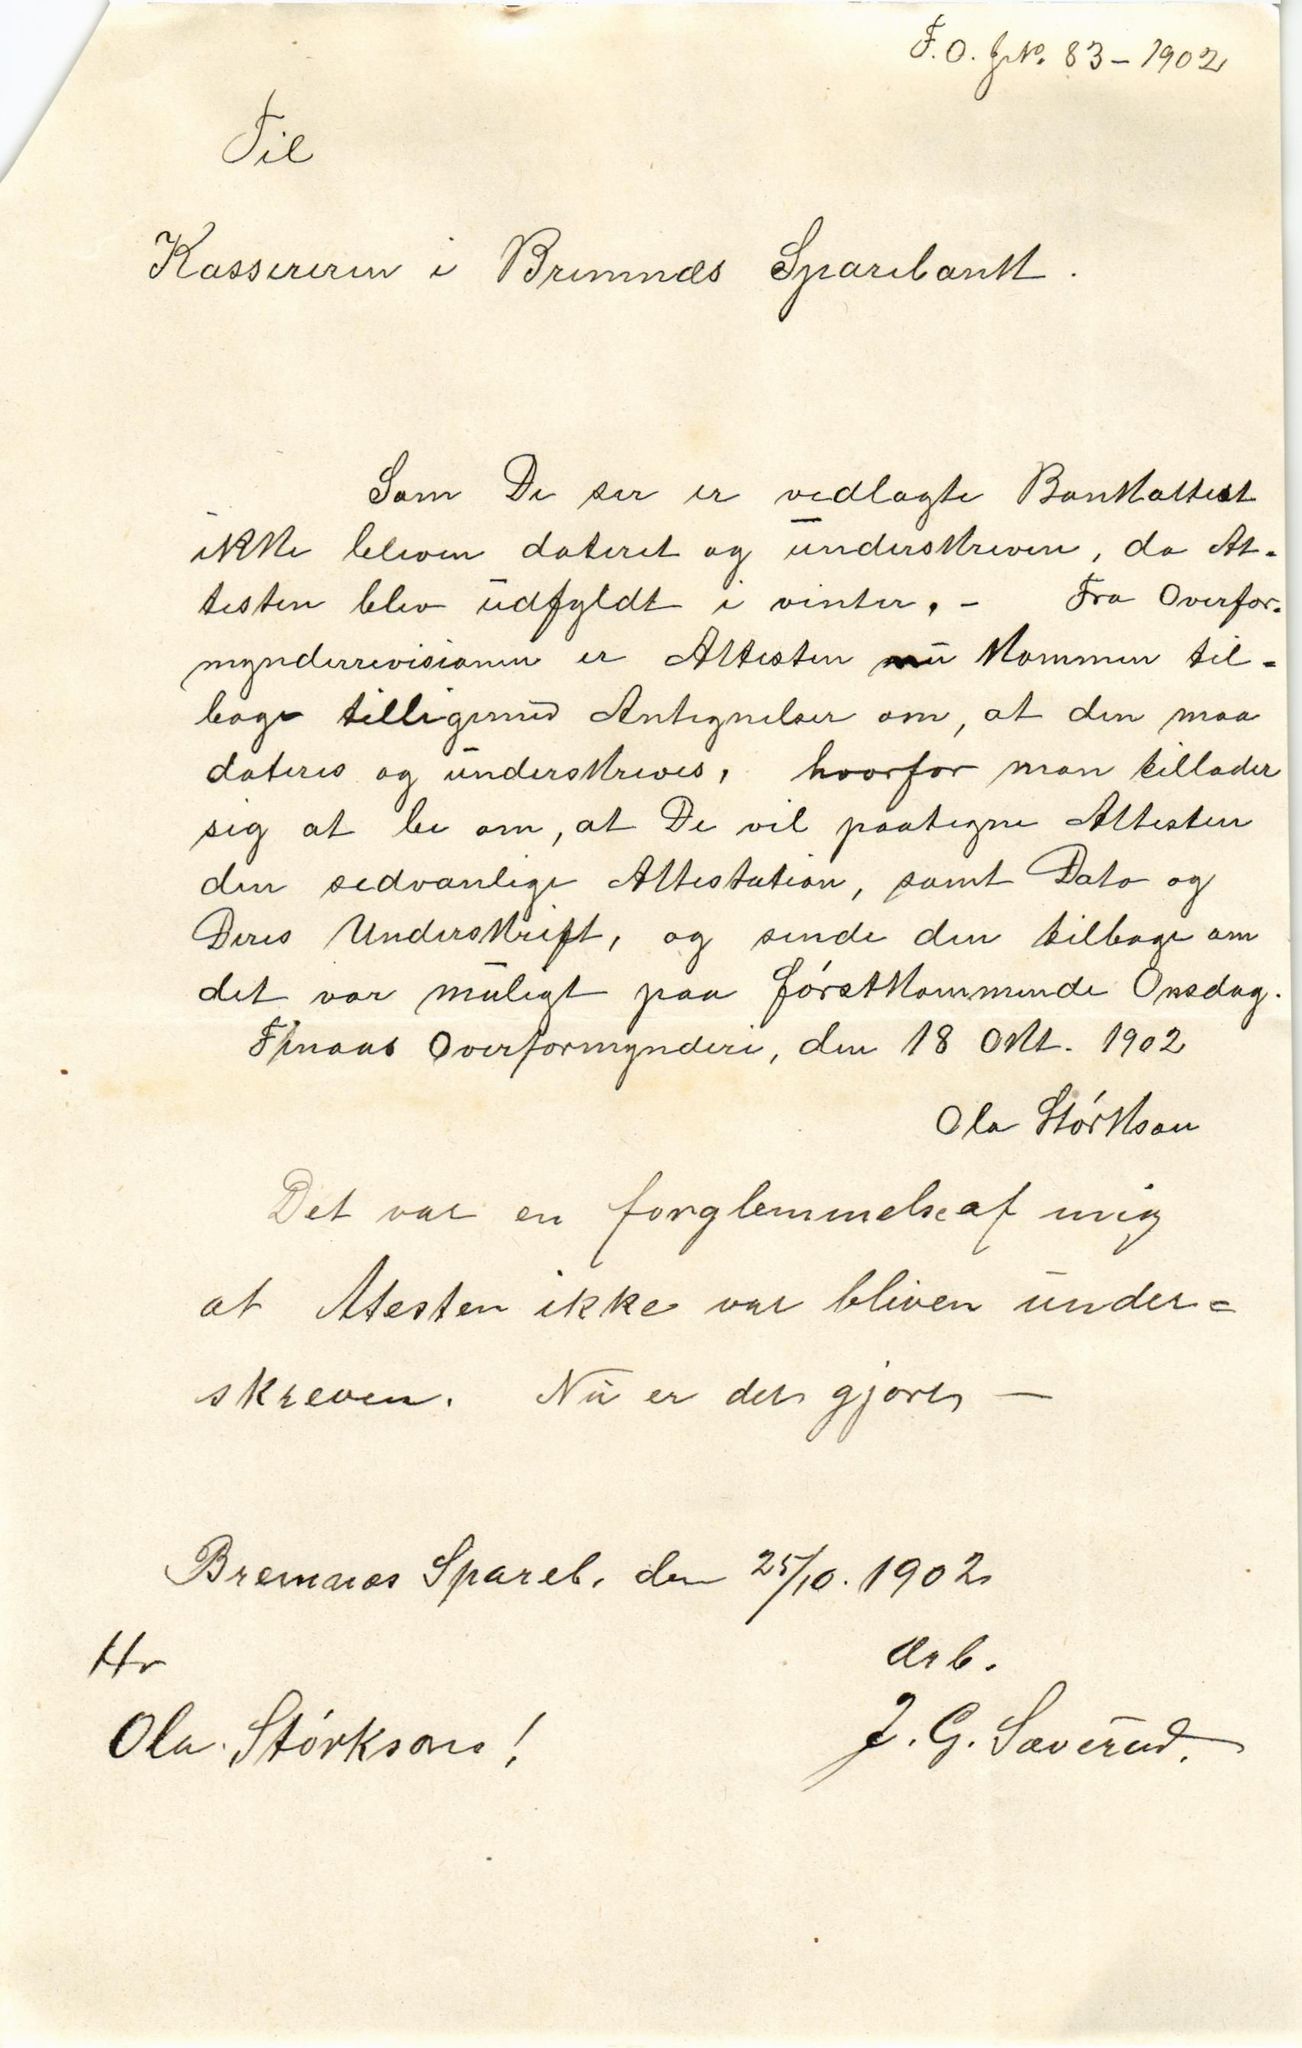 F. O. J.No. 83 - 1902
Til
Kassereren i Bremnæs Sparebank.
Som De ser er vedlagte Bankattest
ikke bleven dateret og underskreven, da At-
testen blev udfyldt i vinter. - Fra Overfor-
mynderrevisionen er Attesten nu kommen til-
bage tilligemed Antegnelser om, at den maa
dateres og underskrives, hvorfor man tillader
sig at be om, at De vil paategne Attesten
den sedvanlige Attestation, samt Dato og
Deres Underskrift, og sende den tilbage om
det var muligt paa førstkommende Onsdag.
Finaas Overformynderi, den 18 Okt. 1902
Ola Størkson
Det var en forglemmelse af mig
at Atesten ikke var bliven under=
skreven. Nu er det gjort —
Bremnæs Spareb. den 25/10. 1902
Hr Ærb.
Ola Størkson! J. G. Sæverud.